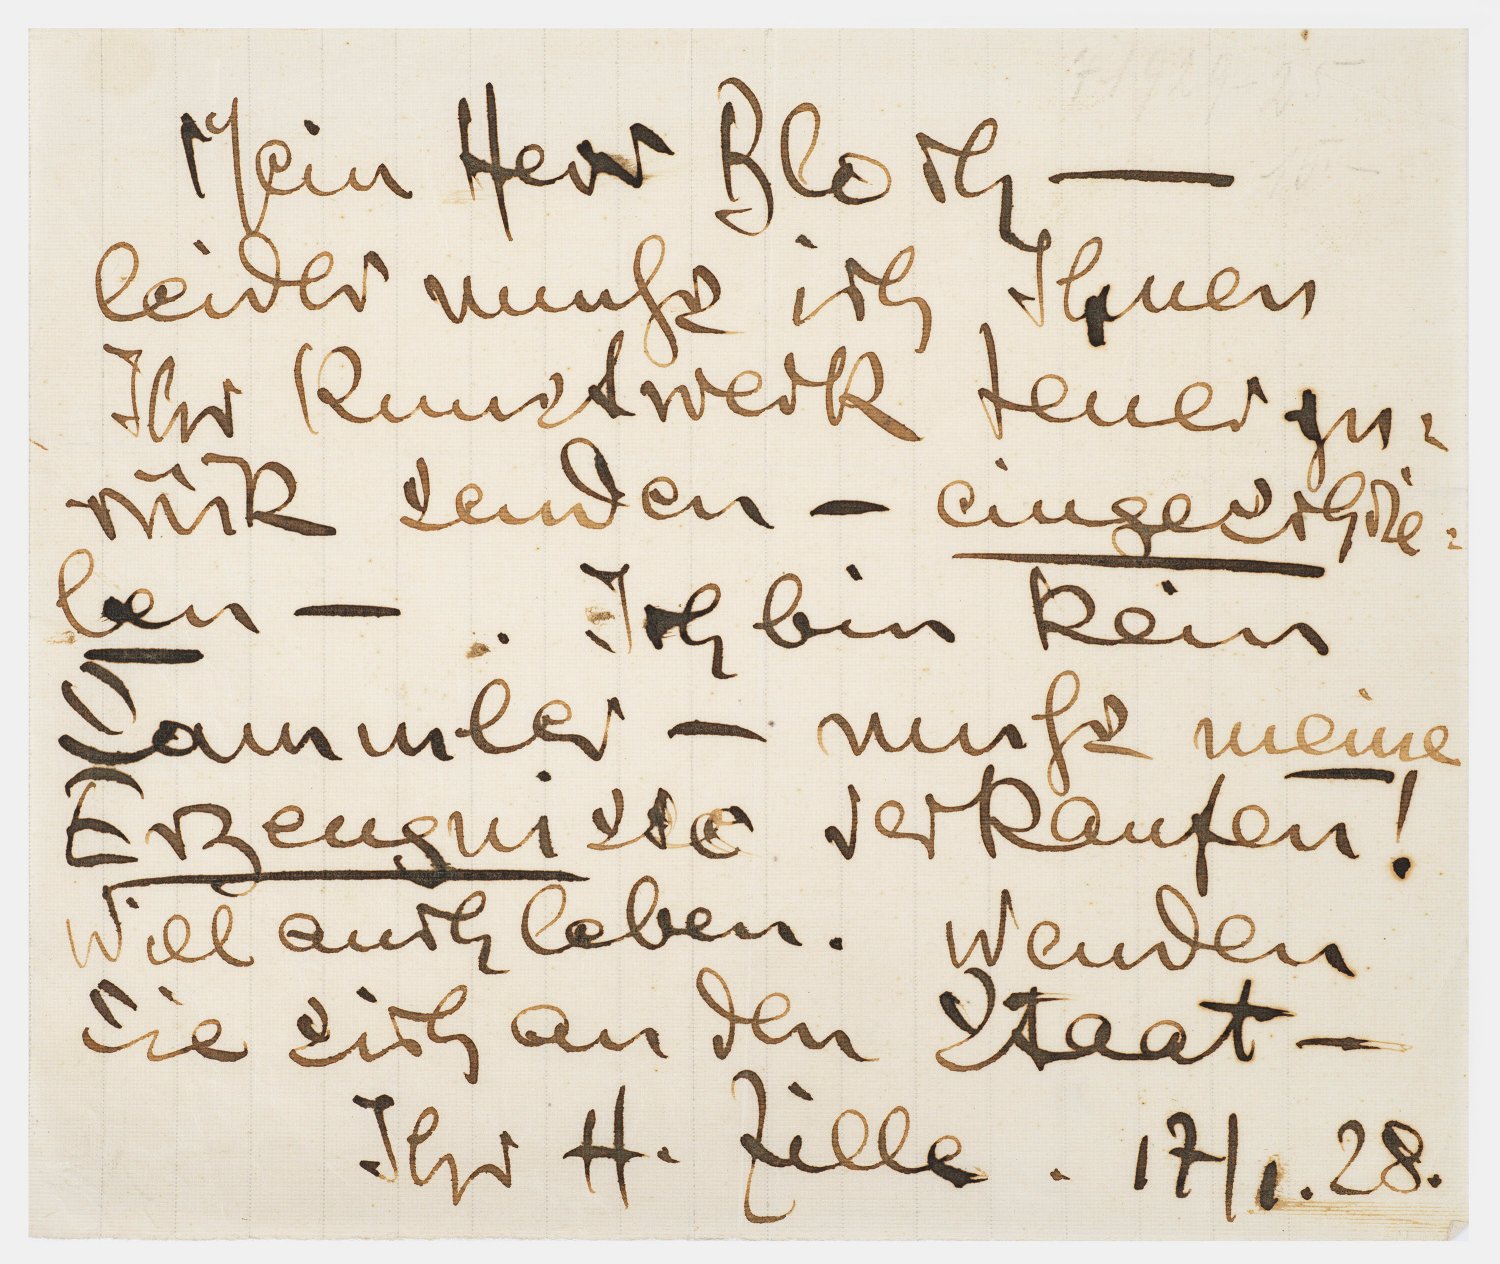 Mein Herr Bloch —
leider muss ich Ihnen
Ihr Kunstwerk teuer zu-
rück senden — eingeschrie-
ben — . Ich bin kein
Sammler — muss meine
Erzeugnisse verkaufen!
Will auch leben. Wenden
Sie sich an den Staat —
Ihr H. Zille . 17/1.28.